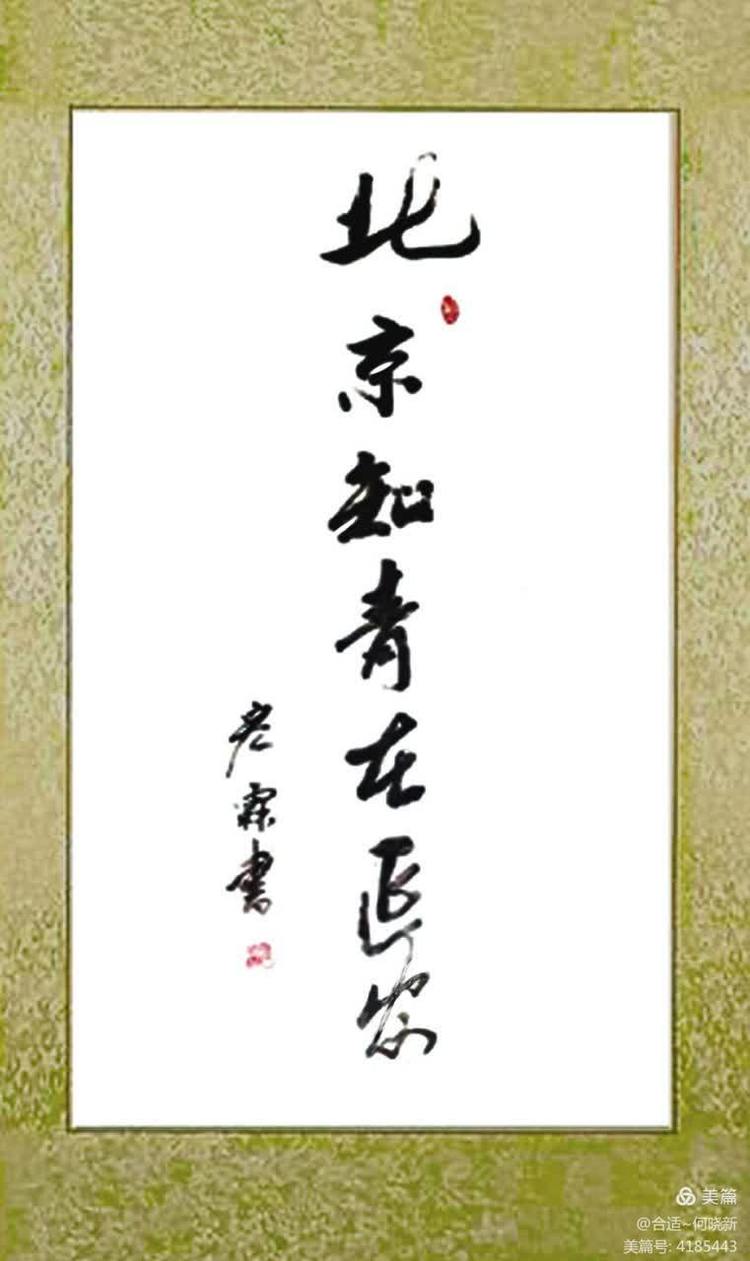 北京知青在延安
彦霖書
美篇
@合适~何晓新
美篇号: 4185443